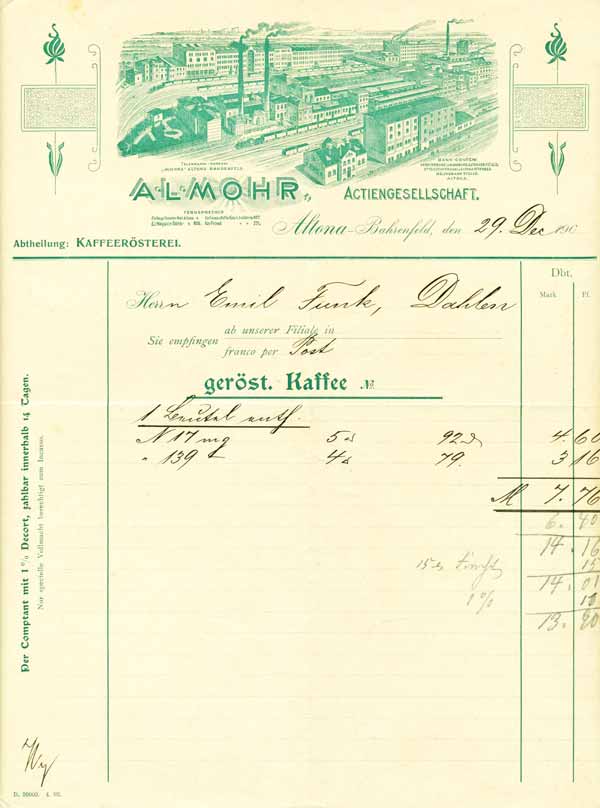 A·L·MOHR, ACTIENGESELLSCHAFT.
TELEGRAMM-ADRESSE
BANK-CONTEN:
FERNSPRECHER
Altona-Bahrenfeld, den 29. Dec 190
Abtheilung: KAFFEERÖSTEREI.
Dbt.
Mark Pf.
Herrn Emil Funk, Dahlen
Sie empfingen ab unserer Filiale in
franco per Post
geröst. Kaffee №
1 Beutel enth.
N 17 mg 5 92 4. 60
" 139 4 79. 3 16
M 7. 76
6. 40
14. 16
15
14. 01
1%
13.
Per Comptant mit 1% Decort, zahlbar innerhalb 14 Tagen.
Nur specielle Vollmacht berechtigt zum Incasso.